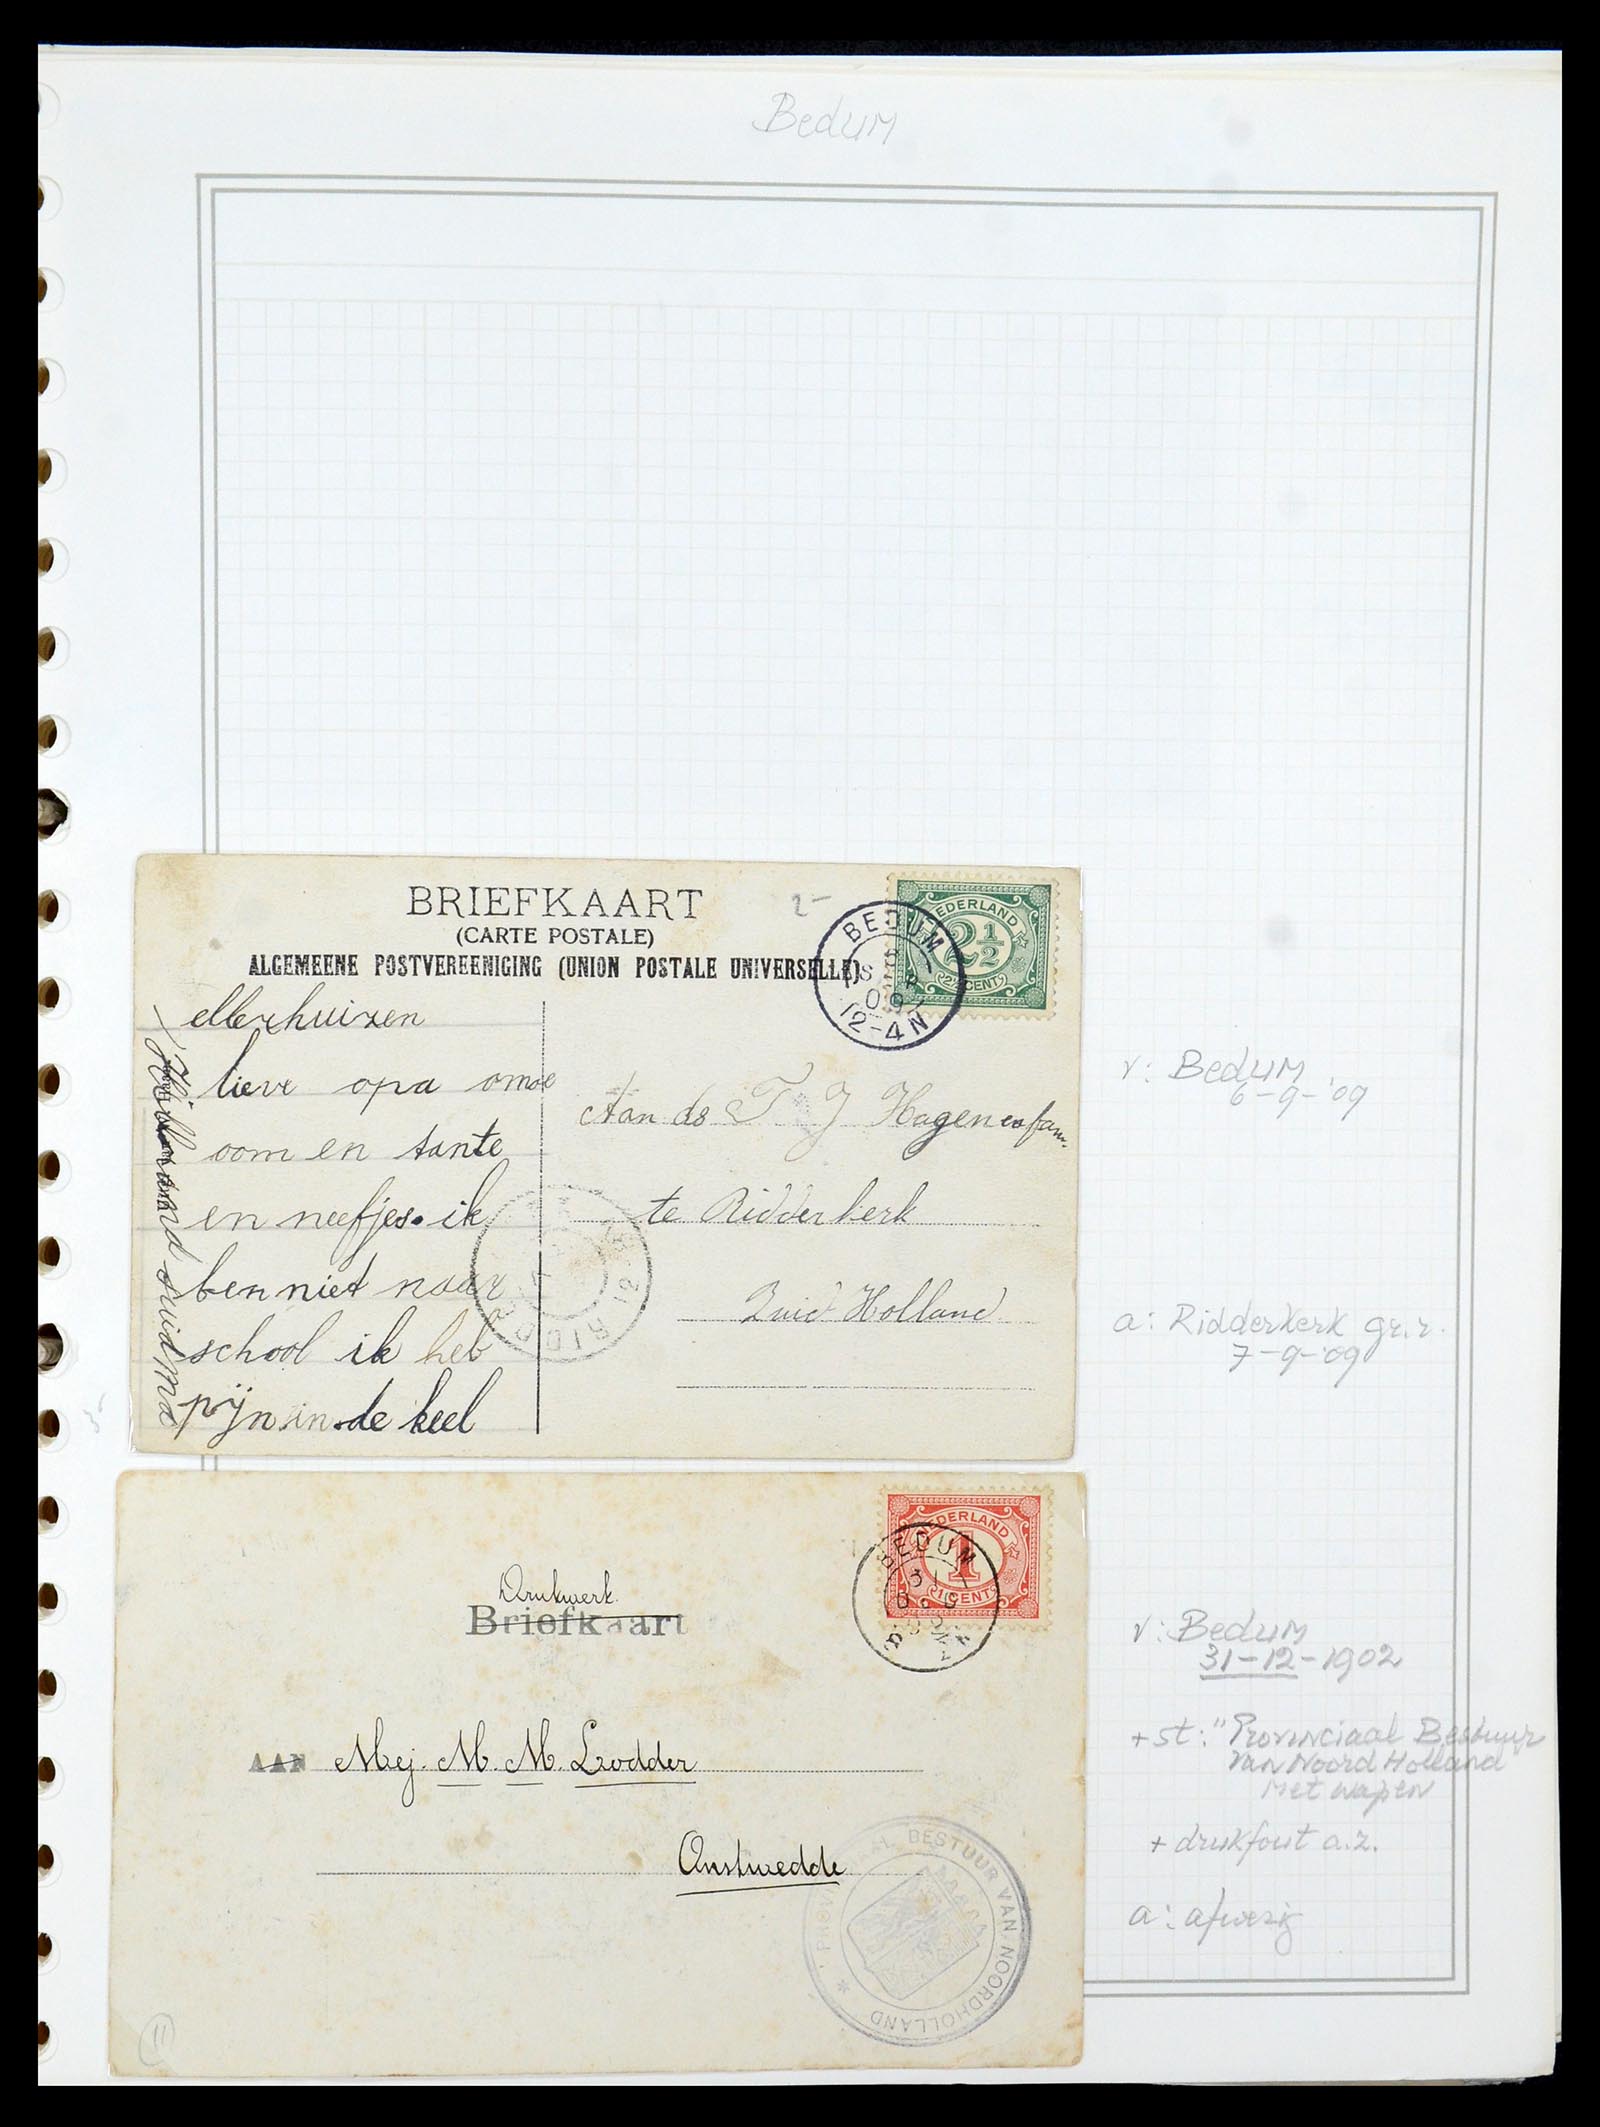 Bedum
BRIEFKAART
(CARTE POSTALE)
ALGEMEENE POSTVEREENIGING (UNION POSTALE UNIVERSELLE)
2-
NEDERLAND
2½
2½ CENT
BEDUM
6 SEP
09
12-4N
ellerhuizen
lieve opa omoe
oom en tante
en neefjes. ik
ben niet naar
school ik heb
pijn in de keel
Aan ds T J Hagen en fam.
te Ridderkerk
Zuid Holland
RIDD
v: Bedum
6-9-'09
a: Ridderkerk gr.r.
7-9-'09
NEDERLAND
1
1 CENT
BEDUM
31
Drukwerk
Briefkaart
AAN Mej. M. M. Lodder
Onstwedde
PROVINCIAAL BESTUUR VAN NOORDHOLLAND
11
v: Bedum
31-12-1902
+ st: "Provinciaal Bestuur
van Noord Holland
met wapen
+ drukfout a.z.
a: afwezig